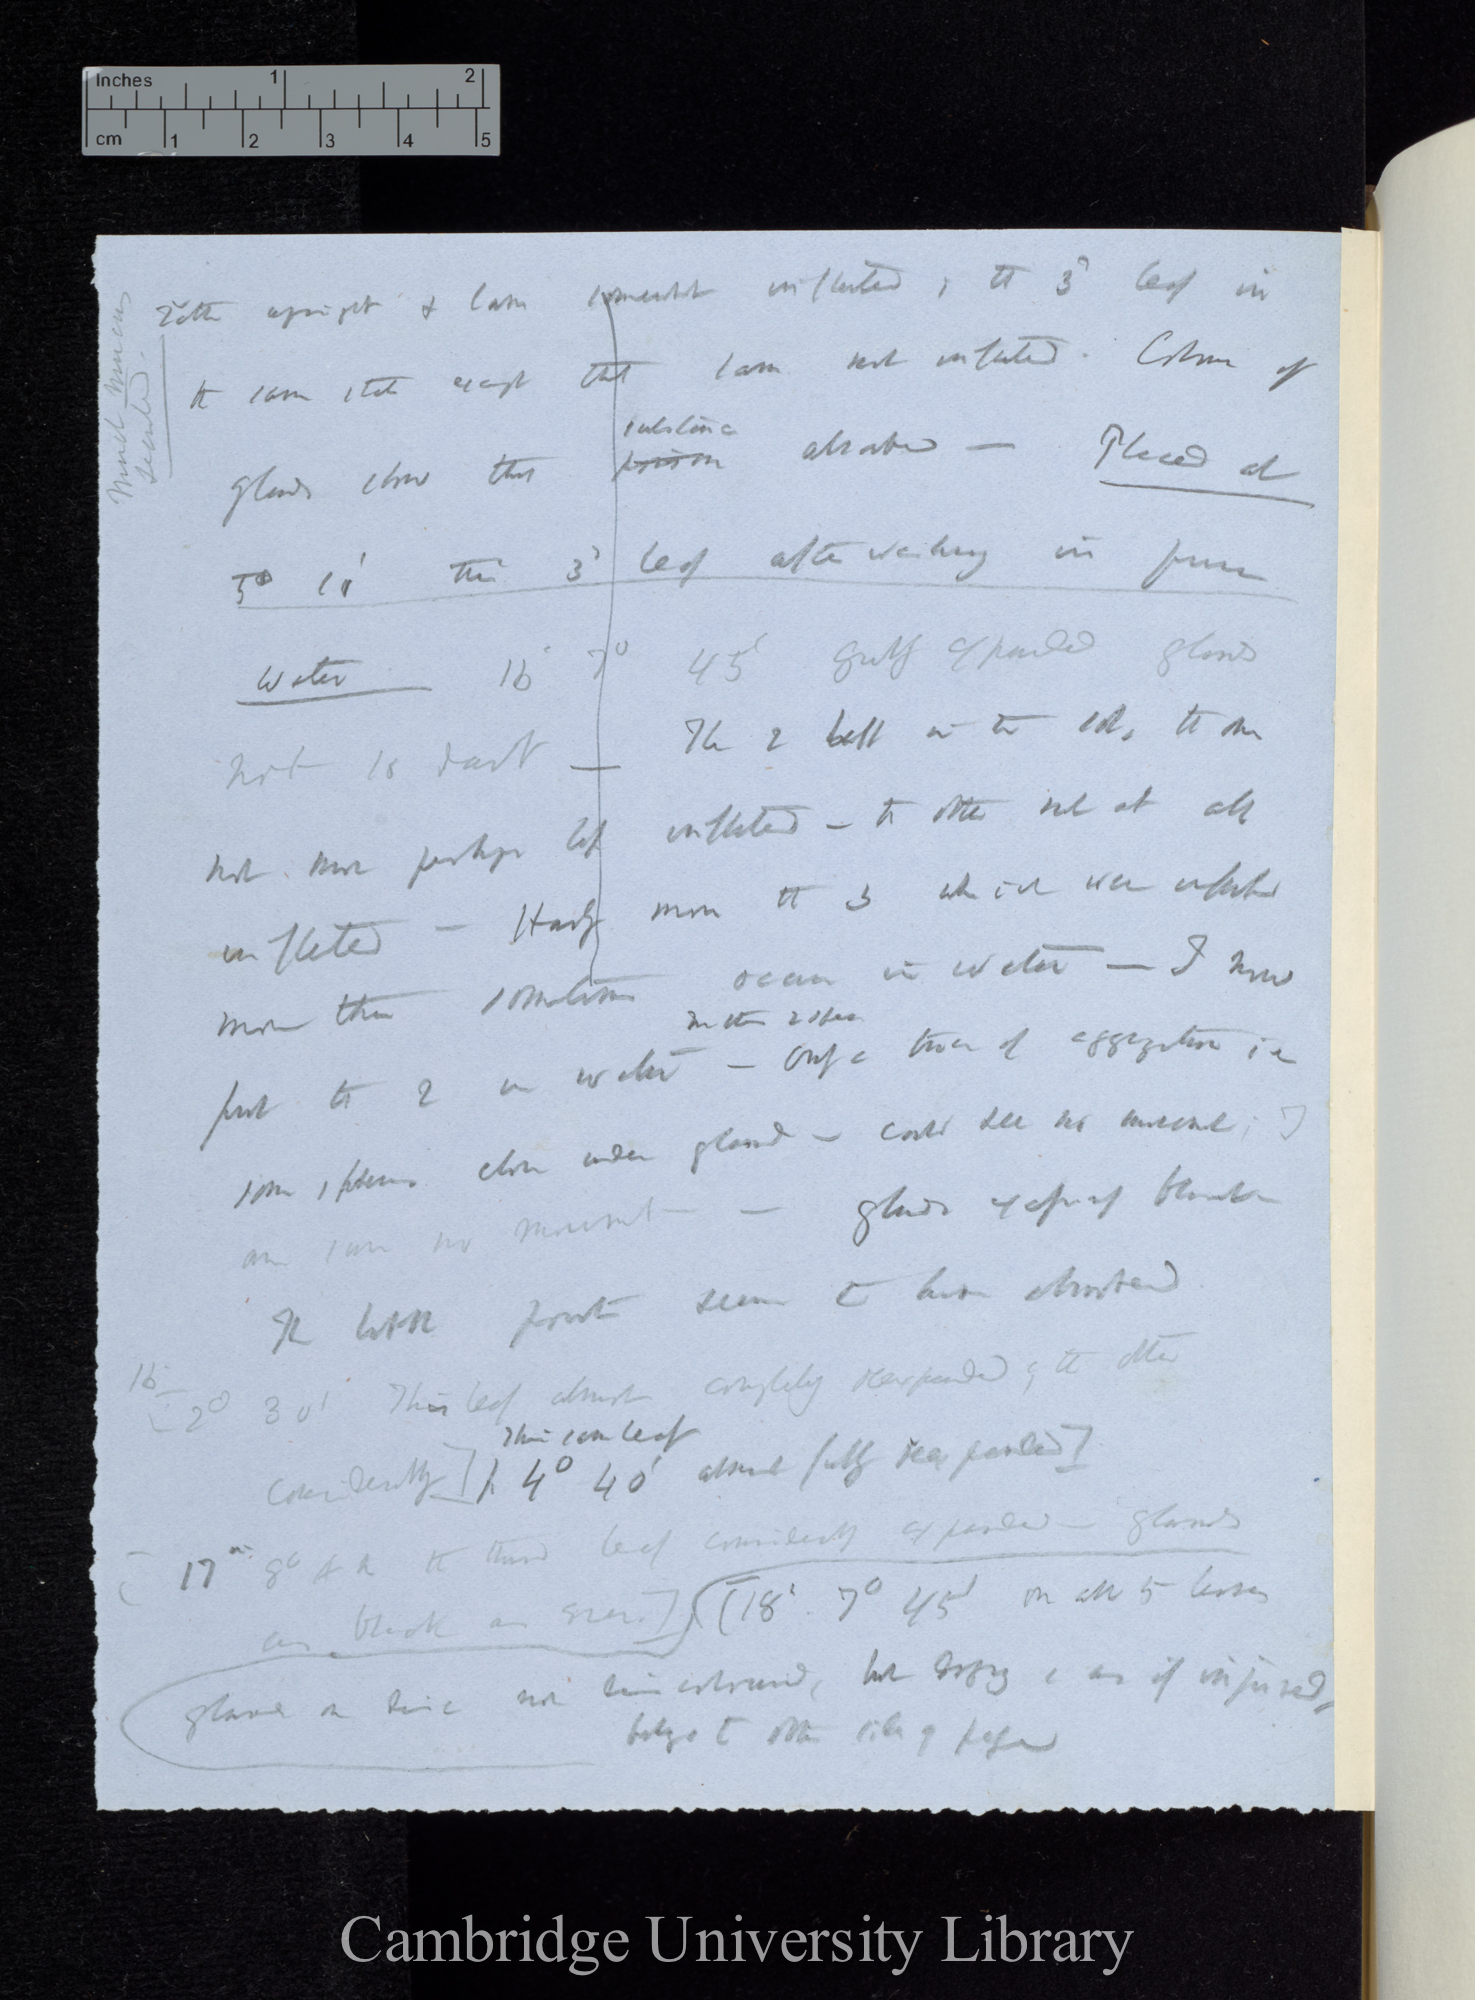 Inches 1 2
cm 1 2 3 4 5
Much mucus
secreted.
rather upright & lam somewhat inflected; the 3d leaf in
the same state except that lam not inflected. Colour of
glands show that substance absorbed — Placed at
poison
5° 10' this 3d leaf after washing in pure
water 16 7° 45' fully expanded glands
not so dark — The 2 left in the sol, the one
not more perhaps less inflected — the other not at all
inflected — Hardly more the 3 which were inflected
more than sometimes occurs in water — I now
put the 2 in water — Only a trace of aggregation in
some close under gland — could see no movement; I
am sure no movement — glands blackish
The little seem to have absorbed
16 2° 30' This leaf almost completely reexpanded; the other
considerably] 4° 40' almost fully reexpanded]
This same leaf
17th 8° A.M. the third leaf considerably expanded — glands
as black as ever.] (18th 7° 45' on all 5 leaves
glands on disc not discoloured, but as if injured,
belongs to other side of paper
Cambridge University Library